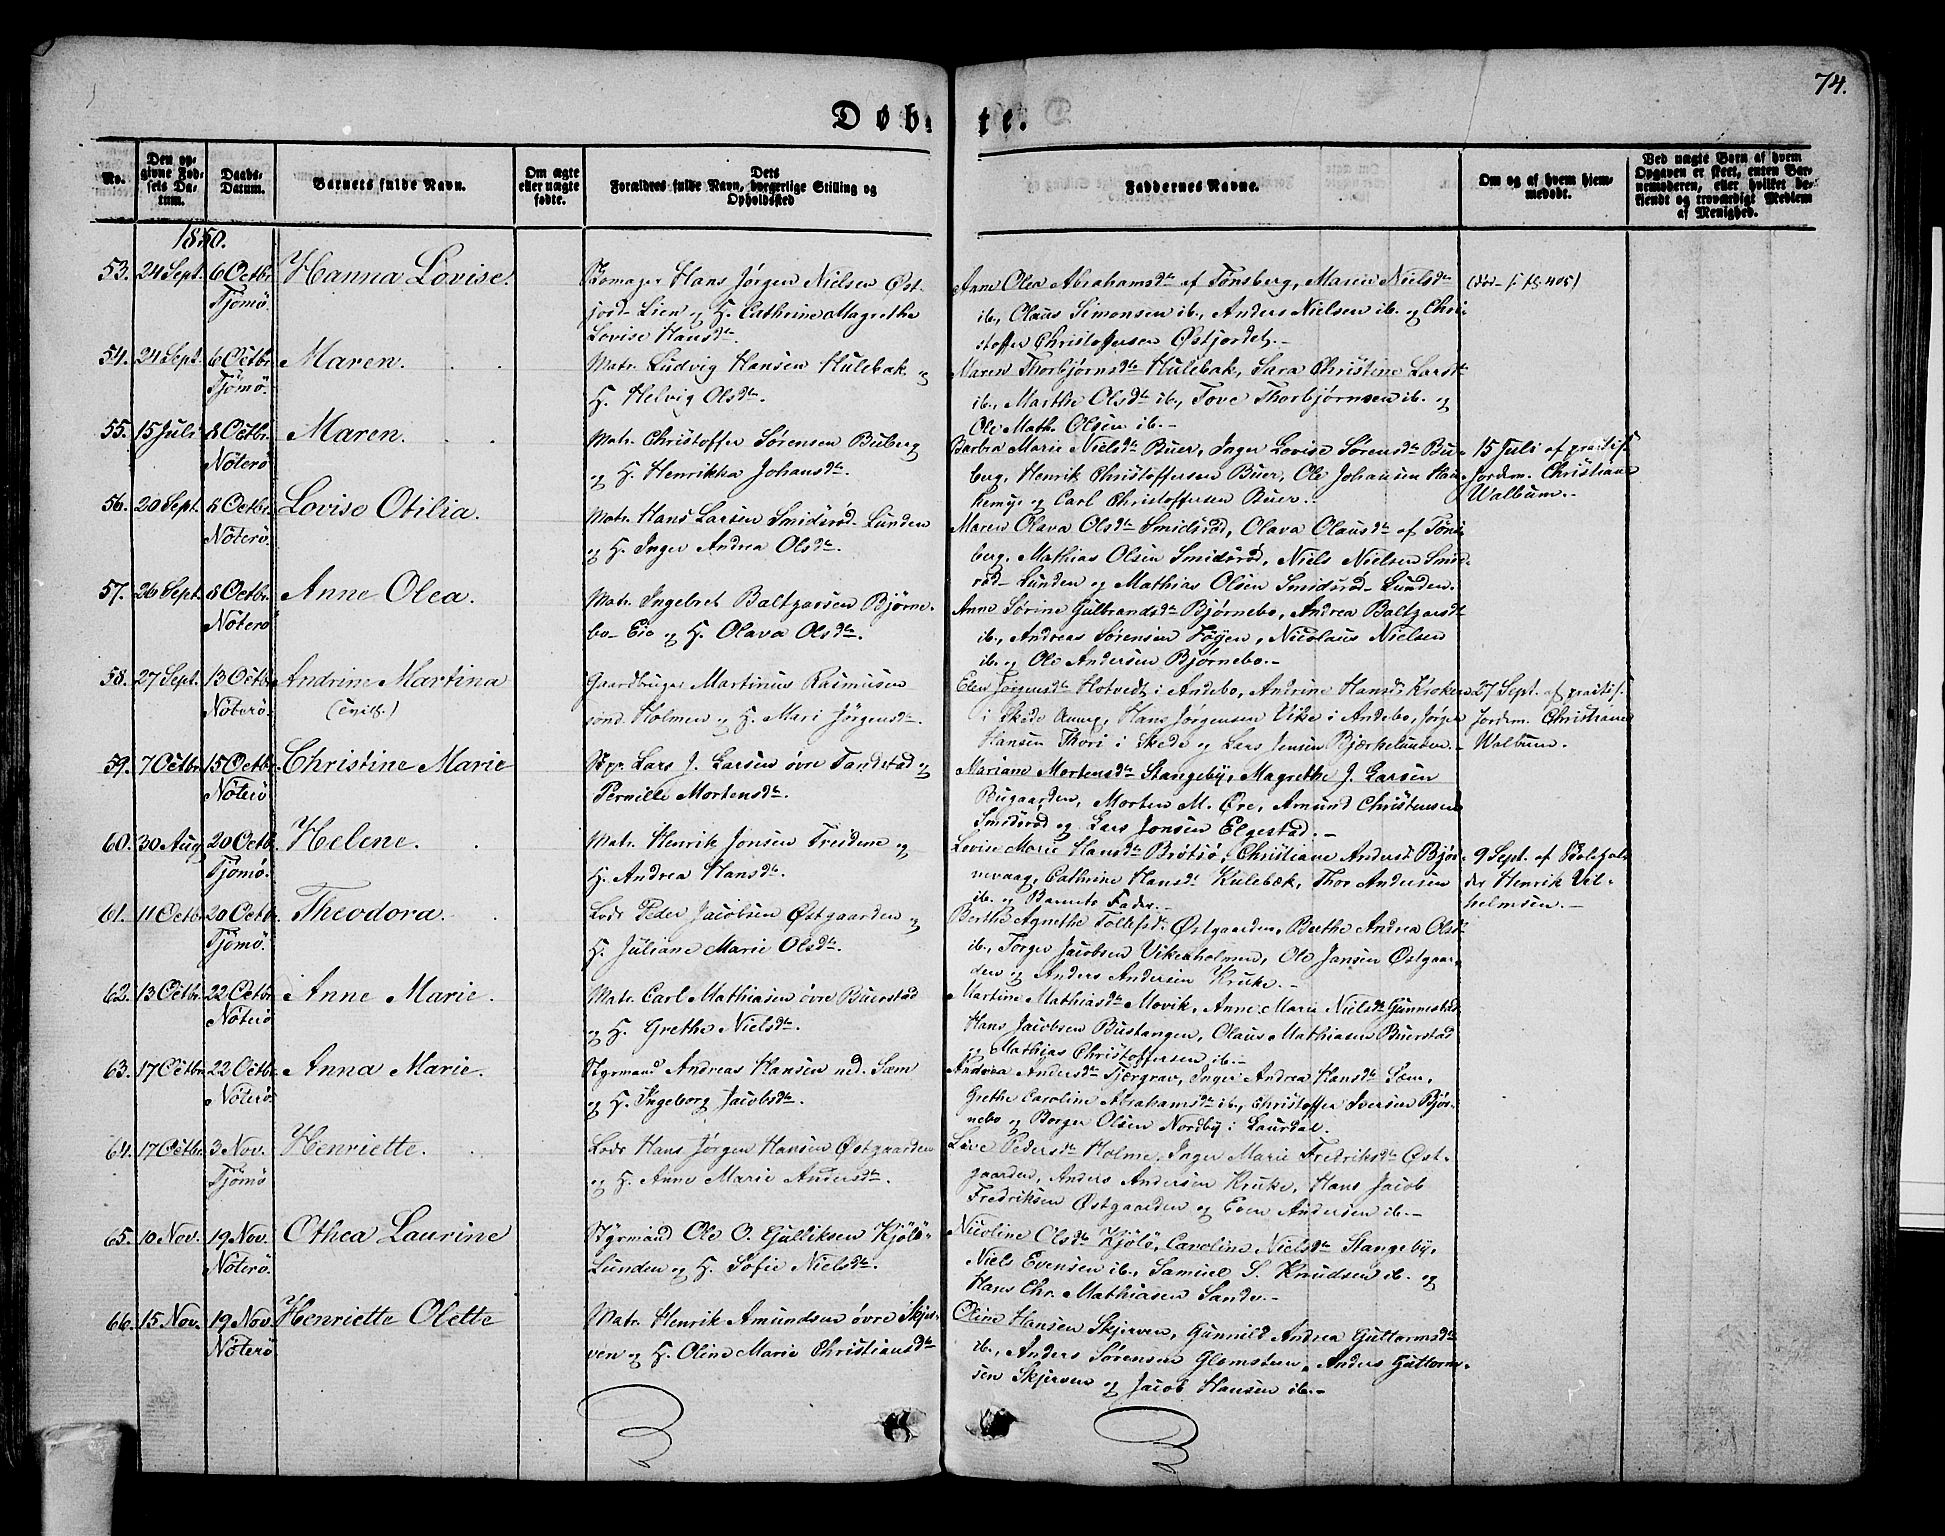 74.
Døbte.
No.
Den opgivne Fødsels Datum.
Daabs-Datum.
Barnets fulde Navn.
Om ægte eller uægte fødte.
Dets Forældres fulde Navn, borgerlige Stilling og Opholdssted
Faddernes Navne.
Om og af hvem hjemmedøbt.
Ved uægte Børn af hvem Opgaven er skeet, enten Barnemoderen, eller hvilket bekjendt og troværdigt Medlem af Menighed.
1850.
53. 24 Sept. 6 Octbr. Tjømø. Hanna Lovise.
Hans Jørgen Nielsen Øst-
jord-Lien og H. Cathrine Magrethe
Lovise Hansdtr.
Anne Olea Abrahamsdtr af Tønsberg, Maren Nielsdtr
ib., Olaus Simonsen ib., Anders Nielsen ib. og Chri-
stoffer Christoffersen Østjordet.-
54. 24 Sept. 6 Octbr. Tjømø. Maren.
Matr. Ludvig Hansen Hulebak og
H. Helvig Olsdtr.
Maren Thorbjørnsdtr Hulebak, Sara Christine Larsdtr
ib., Marthe Olsdtr ib., Tove Thorbjørnsen ib. og
Ole Math. Olsen ib.-
55. 15 Juli 8 Octbr. Nøterø Maren.
Matr. Christoffer Sørensen Buberg
og H. Henrikka Johansdtr.
Barbra Marie Nielsdtr Buer, Inger Lovise Sørensdtr Bu-
berg, Henrik Christoffersen Buer, Ole Johansen Hau-
kemyr og Carl Christoffersen Buer.-
15 Juli af practis.
Jordem. Christiane
Walbum.-
56. 20 Sept. 8 Octbr. Nøterø. Lovise Otilia.
Matr. Hans Larsen Smidsrød-Lunden
og H. Inger Andrea Olsdtr.
Maren Olava Olsdtr Smidsrød, Olava Olausdtr af Tøns-
berg, Mathias Olsen Smidsrød, Niels Nielsen Smids-
rød-Lunden og Mathias Olsen Smidsrød-Lunden.
57. 26 Sept. 8 Octbr. Nøterø Anne Olea.
Matr. Ingebret Baltzarsen Bjørne-
bo-Eie og H. Olava Olsdtr.
Anne Sørine Gulbrandsdtr Bjørnebo, Andrea Baltzarsdtr
ib., Andreas Sørensen Føyen, Nicolaus Nielsen
ib. og Ole Andersen Bjørnebo.-
58. 27 Sept. 13 Octbr. Nøterø. Andrine Martina
Gaardbruger Martinus Rasmusen
Holmen og H. Mari Jørgensdtr.
Elen Jørgensdtr Hotvedt i Andebo, Andrine Hansdtr Kroken
i Skede Hans Jørgensen Vike i Andebo, Jørgen
Hansen Thori i Skede og Lars Jensen Bjærkelunden.-
27 Sept. af practis.
Jordem. Christiane
Walbum.
59. 7 Octbr. 15 Octbr. Nøterø Christine Marie
Lars J. Larsen øvre Tandstad og
Pernille Mortensdtr.
Mariane Mortensdtr Stangeby, Magrethe J. Larsen
Bugaarden, Morten M. Øre, Amund Christensen
Smidsrød og Lars Jonsen Elgestad.-
60. 30 Aug 20 Octbr. Tjømø. Helene.
Matr. Henrik Jonsen Treidene og
H. Andrea Hansdtr.
Lovise Marie Hansdtr Brøtsø, Christiane Andersdtr Bjør-
nevaag, Cathrine Hansdtr Kulebæk, Thor Andersen
ib. og Barnets Fader.-
9 Sept. af
Henrik Vil-
helmsen.-
61. 11 Octbr 20 Octbr. Tjømø. Theodora.
Lods Peder Jacobsen Østgaarden og
H. Juliane Marie Olsdtr.
Berthe Agnethe Tollefsdtr Østgaarden, Berthe Andrea Olsdtr
ib., Torger Jacobsen Vikeholmen, Ole Jansen Østgaar-
den og Anders Andersen Kruke.-
62. 13 Octbr. 22 Octbr. Nøterø Anne Marie.
Matr. Carl Mathiasen øvre Buerstad
og H. Grethe Nielsdtr.
Martine Mathiasdtr Movik, Anne Marie Nielsdtr Gunnestad,
Hans Jacobsen Bustangen, Olaus Mathiasen Buerstad
og Mathias Christoffersen ib.-
63. 17 Octbr. 22 Octbr. Nøterø. Anna Marie.
Styrmand Andreas Hansen ned. Sæm
og H. Ingeborg Jacobsdtr.
Andrea Andersdtr Tjærgrav, Inger Andrea Hansdtr Sæm,
Grethe Caroline Abrahamsdtr ib., Christoffer Iversen Bjør-
nebo og Borger Olsen Nordby i Laurdal.
64. 17 Octbr. 3 Nov. Tjømø Henriette.
Lods Hans Jørgen Hansen Østgaarden
og H. Anne Marie Andersdtr.
Live Pedersdtr Holme, Inger Marie Fredriksdtr Øst-
gaarden, Anders Andersen Kruke, Hans Jacob
Fredriksen Østgaarden og Even Andersen ib.-
65. 10 Nov. 19 Nov. Nøterø. Othea Laurine
Styrmand Ole O. Gulliksen Kjøle-
Lunden og H. Sofie Nielsdtr.
Nicoline Olsdtr Kjølø, Caroline Nielsdtr Stangeby,
Niels Evensen ib., Samuel S. Knudsen ib. og
Hans Chr. Mathiasen Sande.-
66. 15 Nov. 19 Nov. Nøterø Henriette Olette
Matr. Henrik Amundsen øvre Skjer-
ven og H. Oline Marie Christiansdtr
Oline Hansen Skjerven, Gunnild Andrea Guttormsdtr
ib., Anders Sørensen Glomsteen, Anders Guttorm-
sen Skjerven og Jacob Hansen ib.-